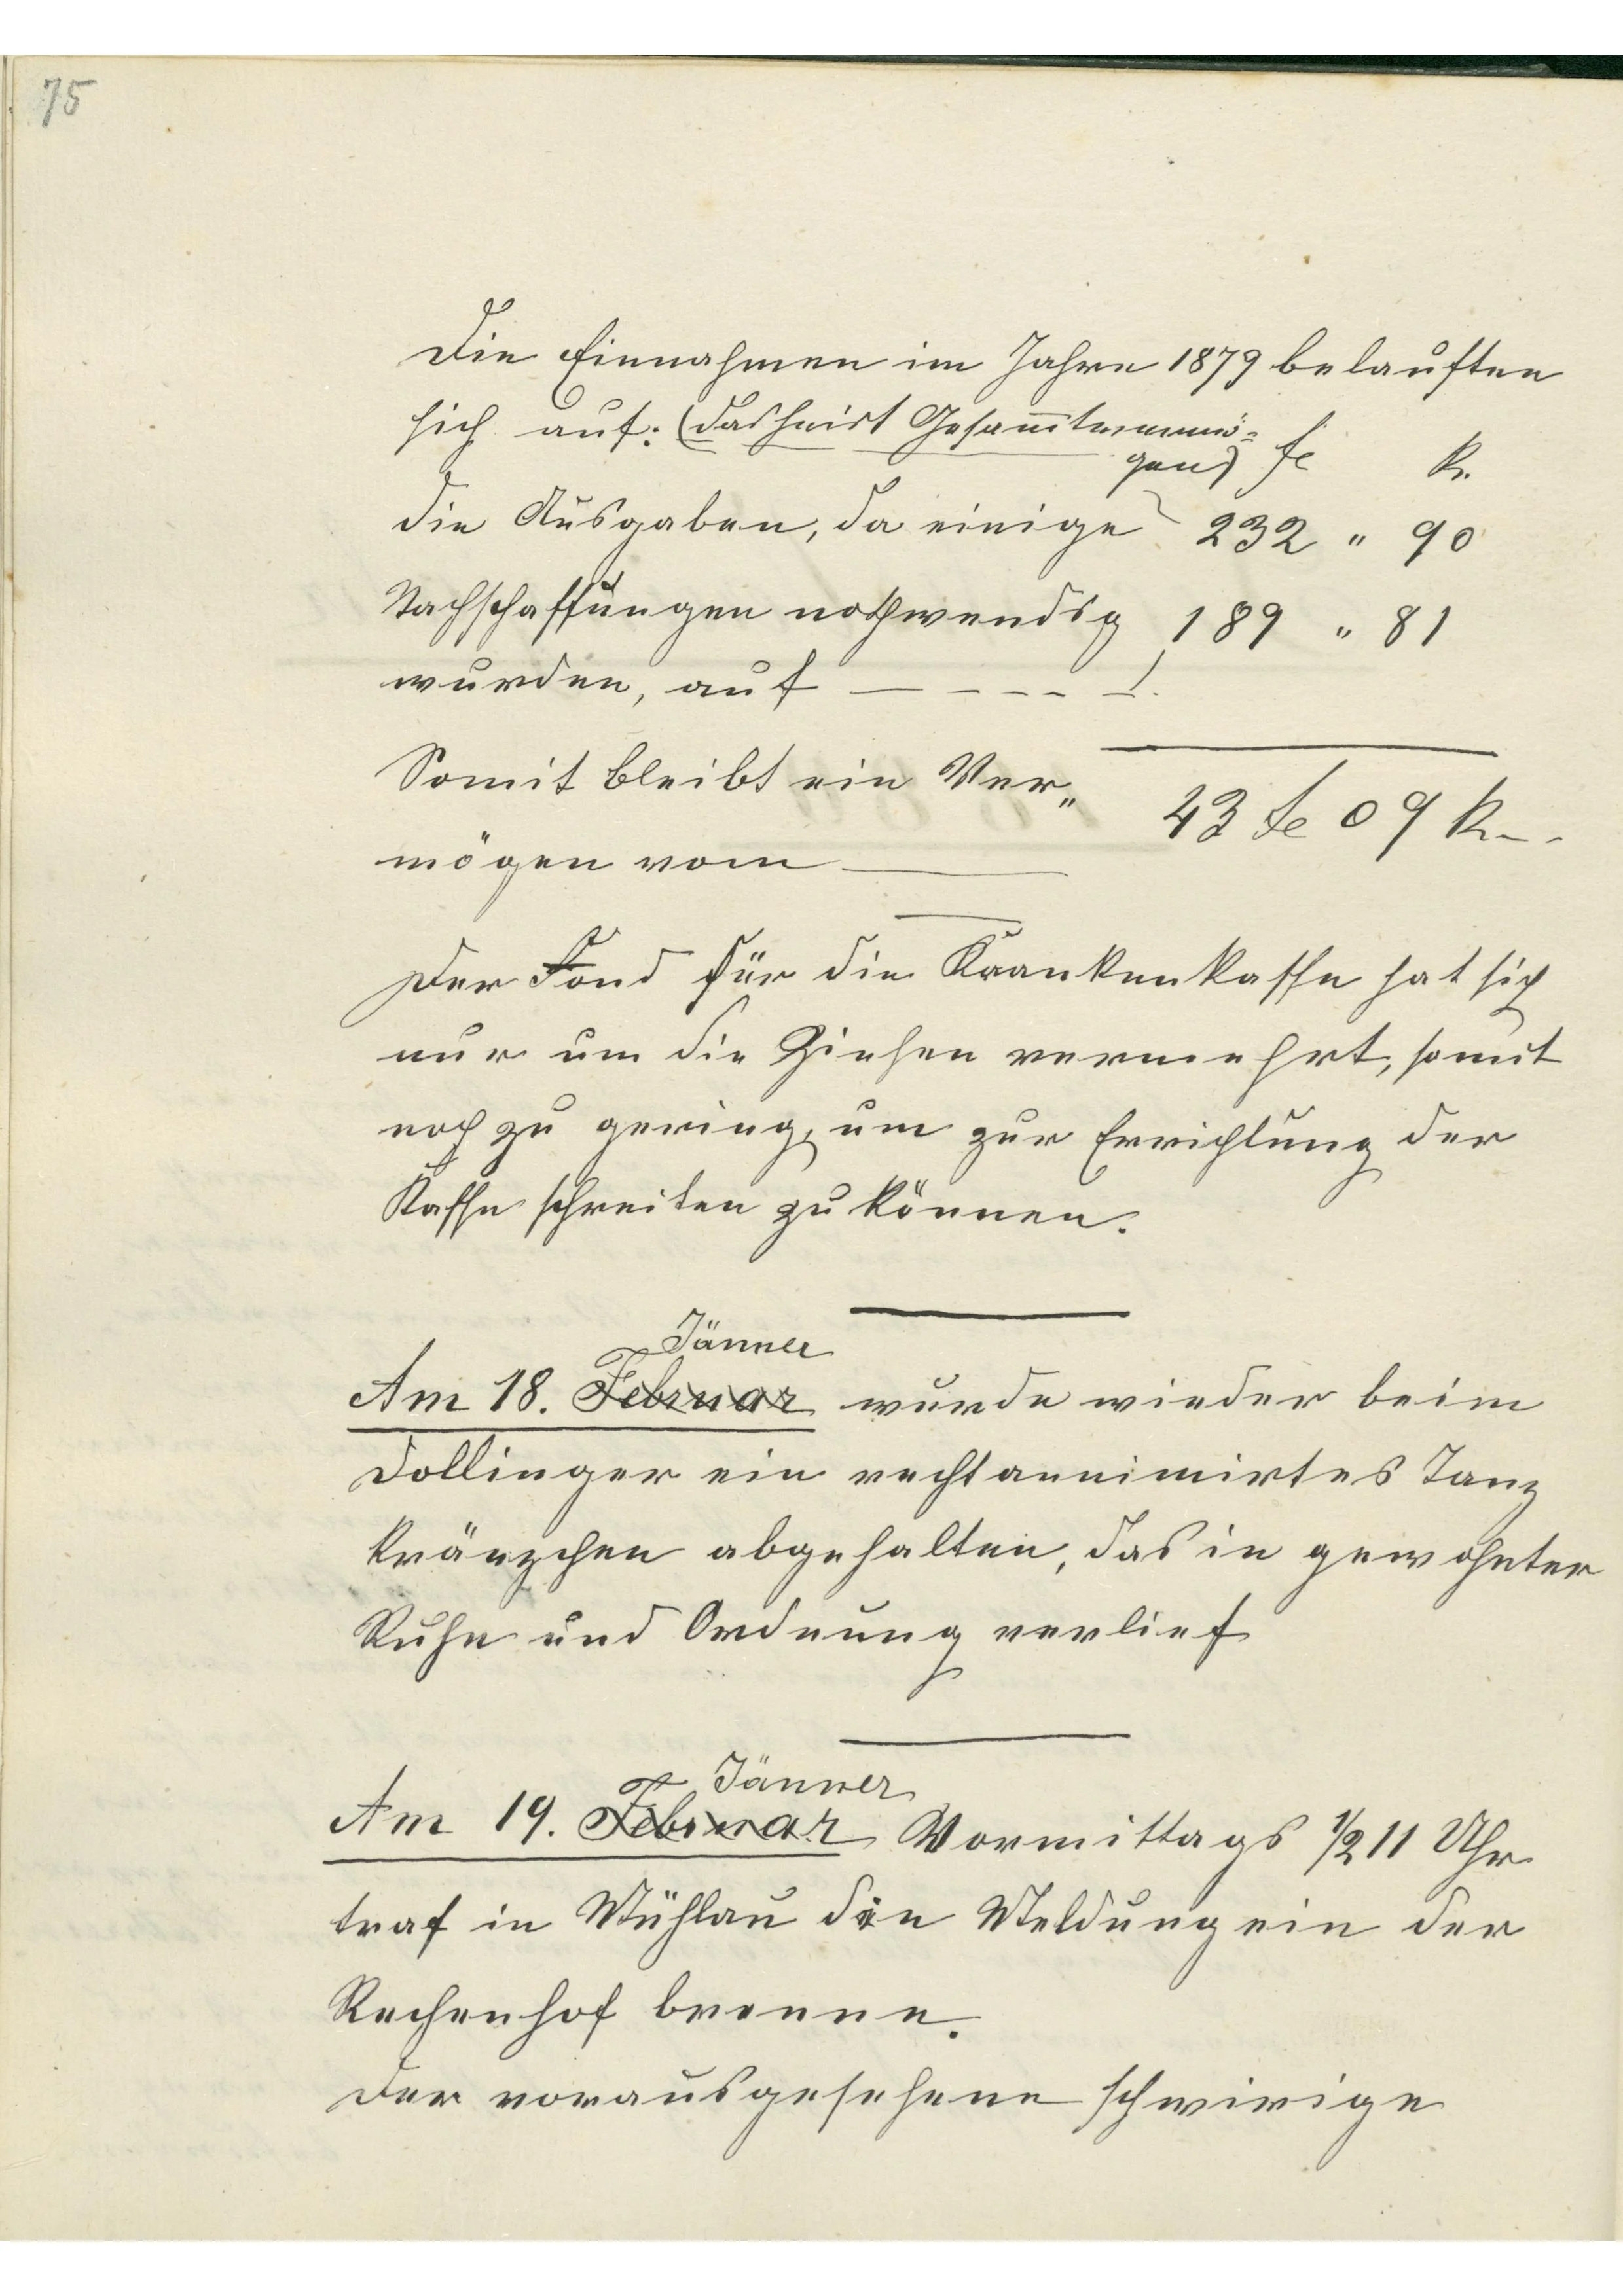 75
Die Einnahmen im Jahre 1879 belauften
sich auf: (das heist Gesam̄tvermö=
gen) fl k.
die Ausgaben, da einige 232 " 90
Nachschaffungen nothwendig 189 " 81
wurden, auf — - - - - !.
Somit bleibt ein Ver„ 43 fl 09 k.
mögen vom —
Der Fond für die Krankenkasse hat sich
nur um die Ziehsen vermehrt, somit
noch zu gering, um zur Errichtung der
Kasse schreiten zu können.
Jänner
Am 18. Februar wurde wieder beim
Dollinger ein recht annimirtes Tanz
kränzchen abgehalten, das in gewohnter
Ruhe und Ordnung verlief
Jänner
Am 19. Februar Vormittags ½ 11 Uhr
traf in Mühlau die Meldung ein der
Rechenhof brenne.
Der vorausgesehene schwirige